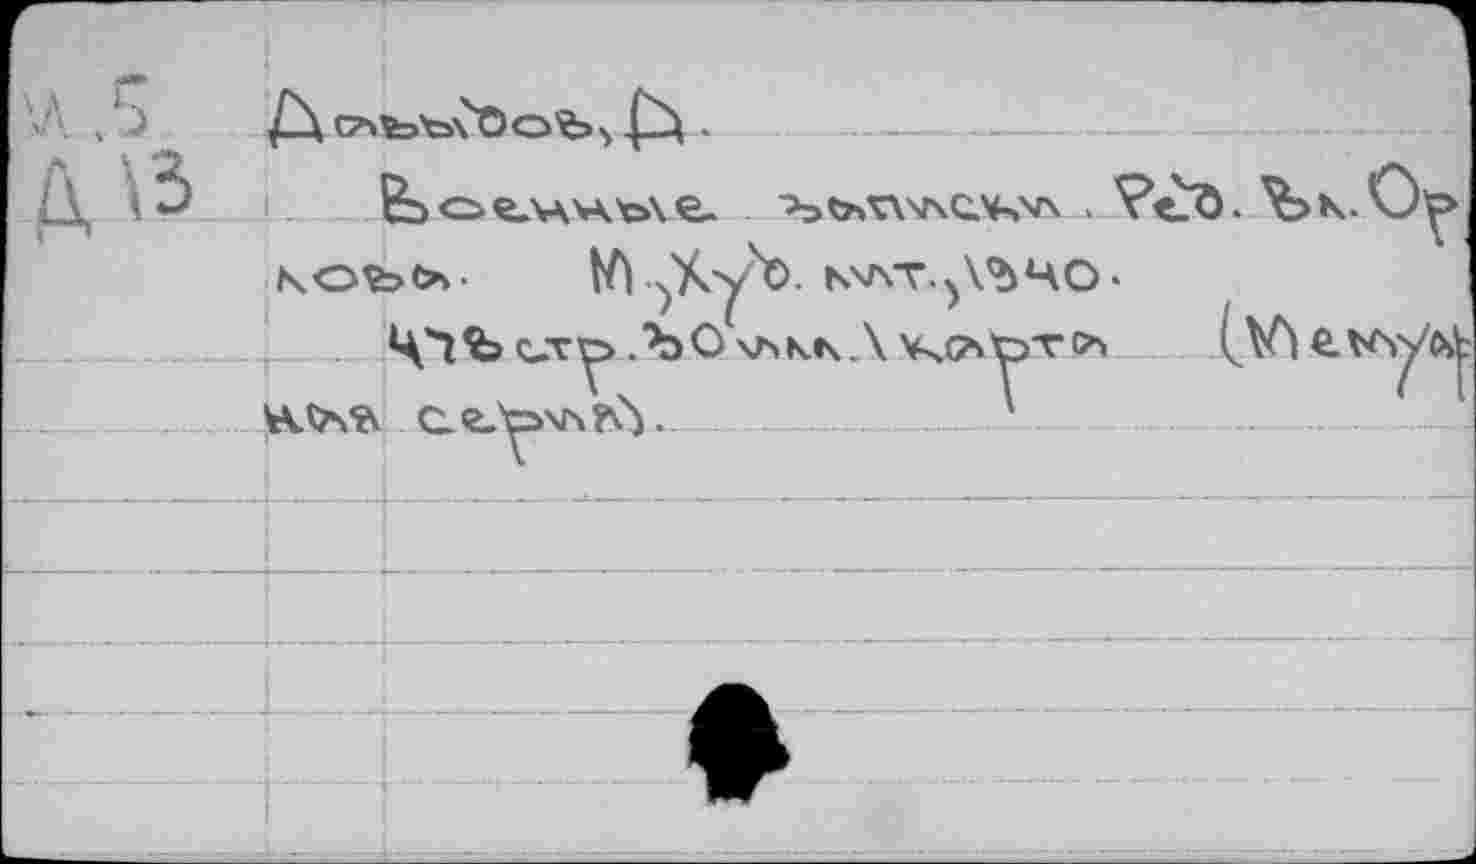 И.5
Д 13
Давыдов, Д.
Военные записки. Ред. Вл. Ор
лова. М., Худ. лит., 1940.
478 стр. 30 илл. 1 карта (Мемуар
ная серия).